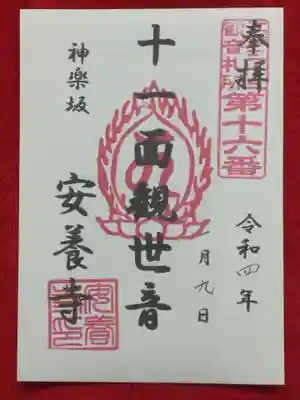 奉拝
第十六番
令和四年
月九日
十一面観世音
神楽坂
安養寺